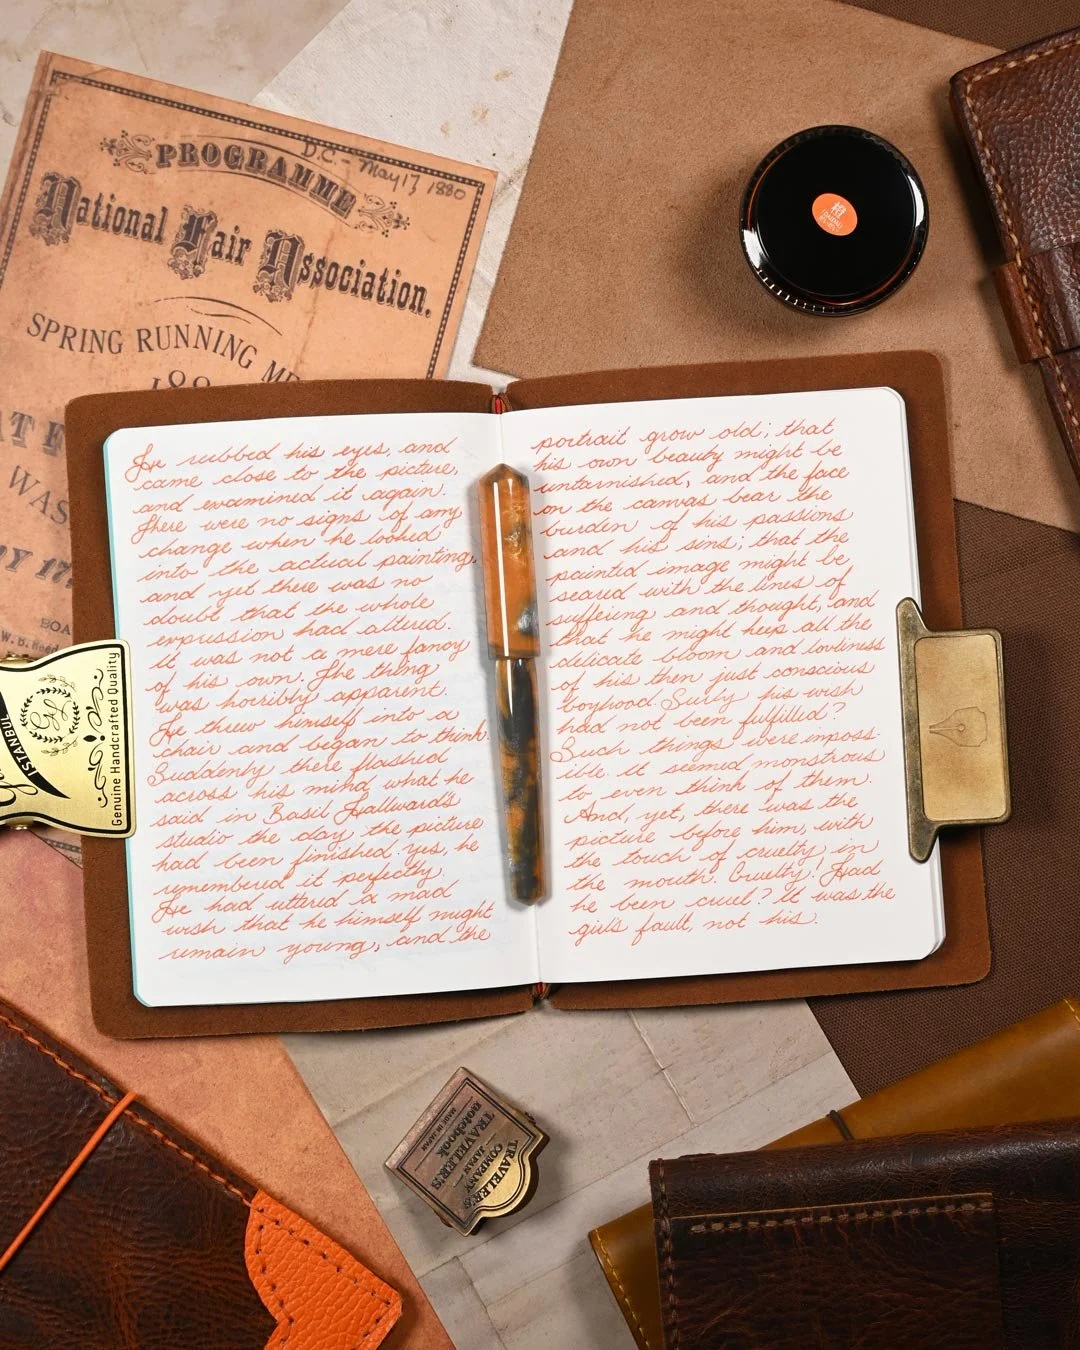 PROGRAMME
D.C. - May 17 1880
National Fair Association.
SPRING RUNNING
He rubbed his eyes, and
came close to the picture,
and examined it again.
There were no signs of any
change when he looked
into the actual painting,
and yet there was no
doubt that the whole
expression had altered.
it was not a mere fancy
of his own. The thing
was horribly apparent.
He threw himself into a
chair and began to think.
Suddenly there flashed
across his mind what he
said in Basil Hallward's
studio the day the picture
had been finished. yes, he
remembered it perfectly.
He had uttered a mad
wish that he himself might
remain young, and the
portrait grow old; that
his own beauty might be
untarnished, and the face
on the canvas bear the
burden of his passions
and his sins; that the
painted image might be
seared with the lines of
suffering and thought, and
that he might keep all the
delicate bloom and loveliness
of his then just conscious
boyhood. Surly his wish
had not been fulfilled?
Such things were imposs-
ible. it seemed monstrous
to even think of them.
And, yet, there was the
picture before him, with
the touch of cruelty in
the mouth. Cruelty! Had
he been cruel? It was the
girl's fault, not his.
ISTANBUL
Genuine Handcrafted Quality
TRAVELER'S
COMPANY
JAPAN
TRAVELER'S
notebook
MADE IN JAPAN